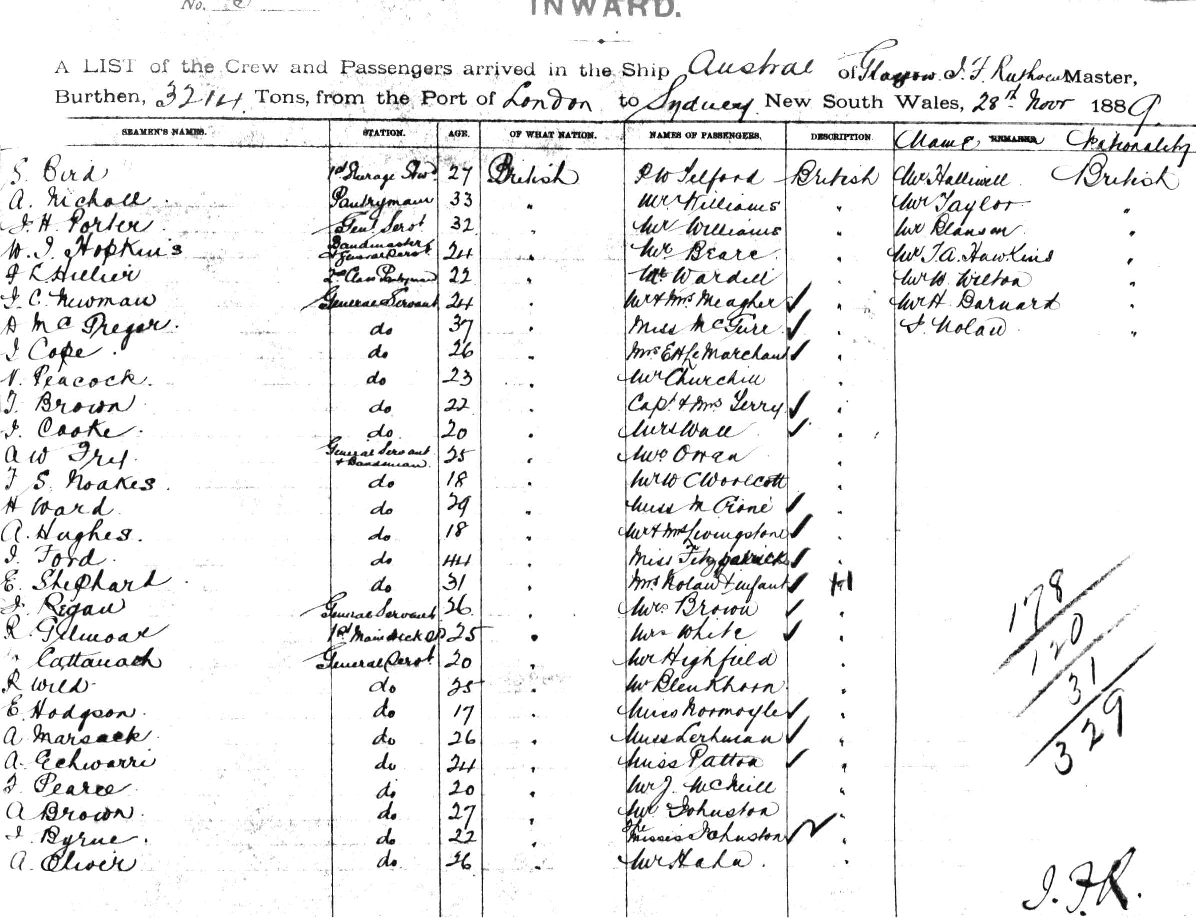 No.
INWARD.
A LIST of the Crew and Passengers arrived in the Ship Austral of Glasgow J. F. Ruthven Master,
Burthen, 3214 Tons, from the Port of London to Sydney New South Wales, 28th Novr 1889.
SEAMEN'S NAMES. STATION. AGE. OF WHAT NATION. NAMES OF PASSENGERS. DESCRIPTION. Name REMARKS Nationality
S. Bird 1st Steerage Stwd 27 British P W Telford British Mr Halliwell British
A. Nicholl Pantryman 33 " Mr Williams " Mr Taylor "
J. H. Porter Genl Servt 32 " Mr Williams " Mr Blanson "
W. J. Hopkins Bandmaster & General Servt 24 " Mr Beare " Mr T. A. Hawkins "
J L Hillier 2nd Class Pantryman 22 " Mr Wardill " Mr W. Wilton "
J. C. Newman General Servant 24 " Mr & Mrs Meagher " Mr H. Barnard "
A McGregor do 37 " Miss McGure " J. Nolan "
J Cope do 26 " Mrs E H Le Marchant "
V. Peacock do 23 " Mr Churchill "
T. Brown do 22 " Capt & Mrs Terry "
J. Cooke do 20 " Mrs Wall "
A W Fry General Servant & Bandsman 25 " Mrs Orran "
F S. Noakes do 18 " Mr W C Woolcott "
H Ward do 29 " Miss M Crone "
A. Hughes do 18 " Mr & Mrs Livingstone "
J. Ford do 44 " Miss Fitzpatrick "
E. Shephard do 31 " Mrs Nolan & infant "
J. Regan General Servant 26 " Mrs Brown "
R. Gilmour 1st Main Deck 25 " Mrs White "
" Cattanach General Servt 20 " Mr Highfield "
R Wild do 25 " Mr Blenkhorn "
E. Hodgson do 17 " Miss Normoyle "
A Marsack do 26 " Miss Lerhman "
A. Echwarri do 24 " Miss Patton "
F Pearce do 20 " Mr J. McNeill "
A Brown do 27 " Mr Johnston "
J. Byrne do 22 " The Misses Johnston "
A. Oliver do 26 " Mr Hahn "
178
120
31
329
J. F. R.